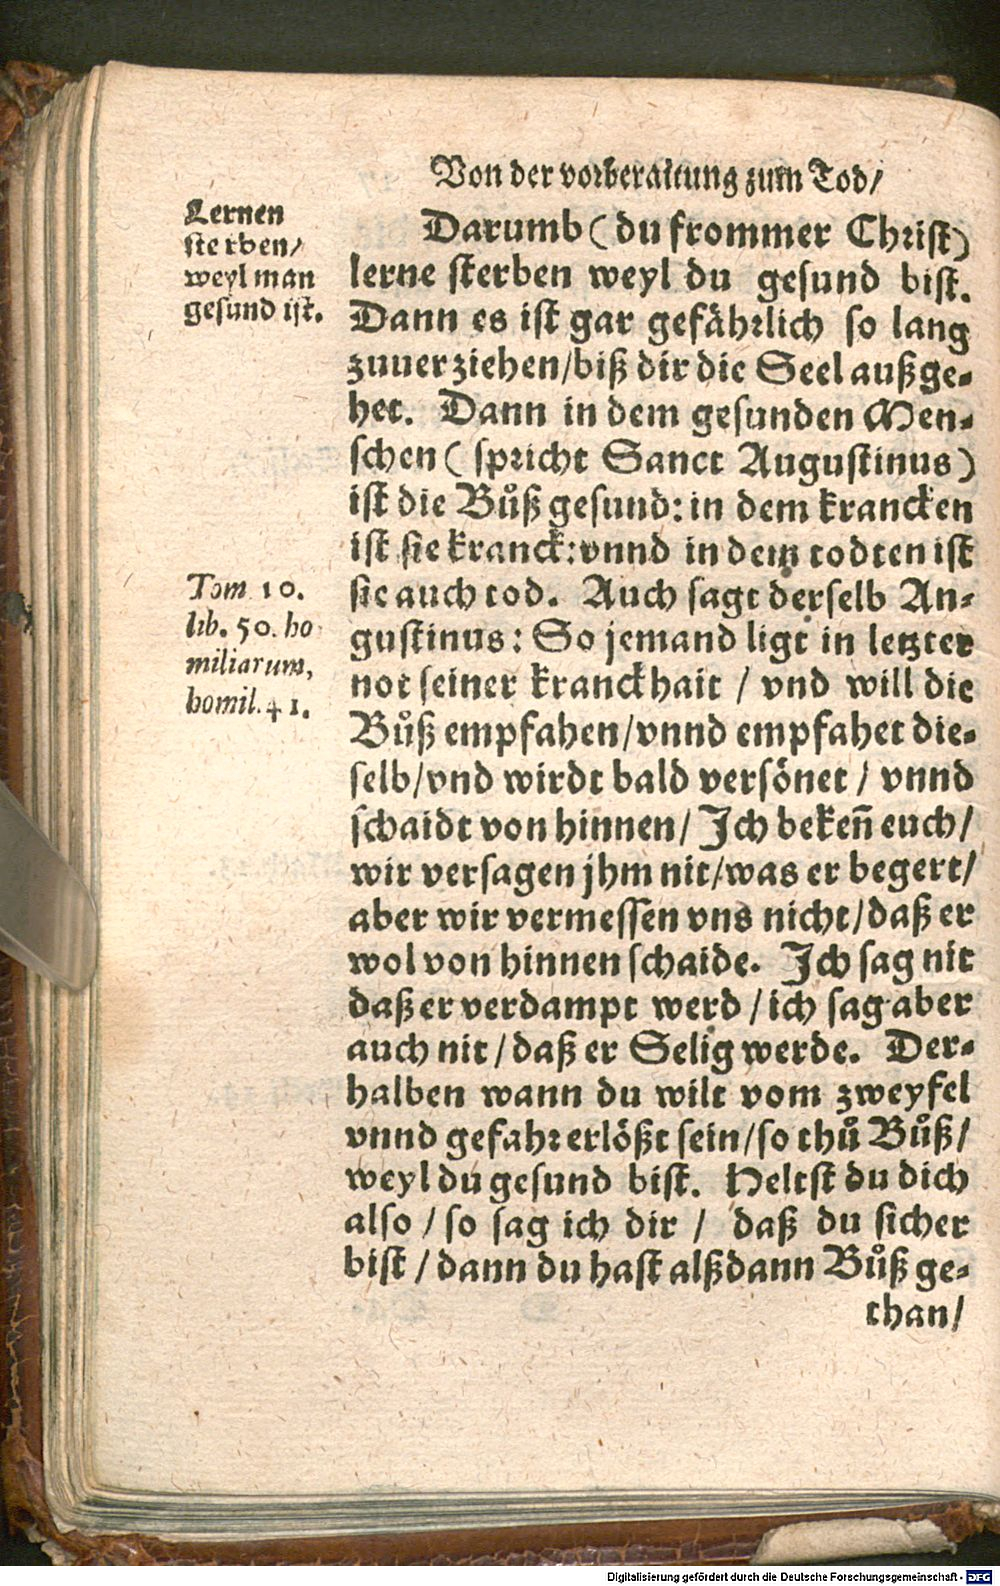 Von der vorberaitung zum Tod/
Lernen
sterben/
weyl man
gesund ist.
Darumb (du frommer Christ)
lerne sterben weyl du gesund bist.
Dann es ist gar gefährlich so lang
zuuerziehen/biß dir die Seel außge-
het. Dann in dem gesunden Men-
schen (spricht Sanct Augustinus)
ist die Bůß gesund: in dem krancken
ist sie kranck: vnnd in dem todten ist
sie auch tod. Auch sagt derselb Au-
gustinus: So jemand ligt in letzter
not seiner kranckhait / vnd will die
Bůß empfahen/vnnd empfahet die-
selb/vnd wirdt bald versönet / vnnd
schaidt von hinnen/ Ich bekeñ euch/
wir versagen jhm nit/was er begert/
aber wir vermessen vns nicht/daß er
wol von hinnen schaide. Ich sag nit
daß er verdampt werd / ich sag aber
auch nit / daß er Selig werde. Der-
halben wann du wilt vom zweyfel
vnnd gefahr erlößt sein/so thů Bůß/
weyl du gesund bist. Heltst du dich
also / so sag ich dir / daß du sicher
bist / dann du hast alßdann Bůß ge-
than/
Tom 10.
lib. 50. ho
miliarum,
homil. 41.
Digitalisierung gefördert durch die Deutsche Forschungsgemeinschaft - DFG